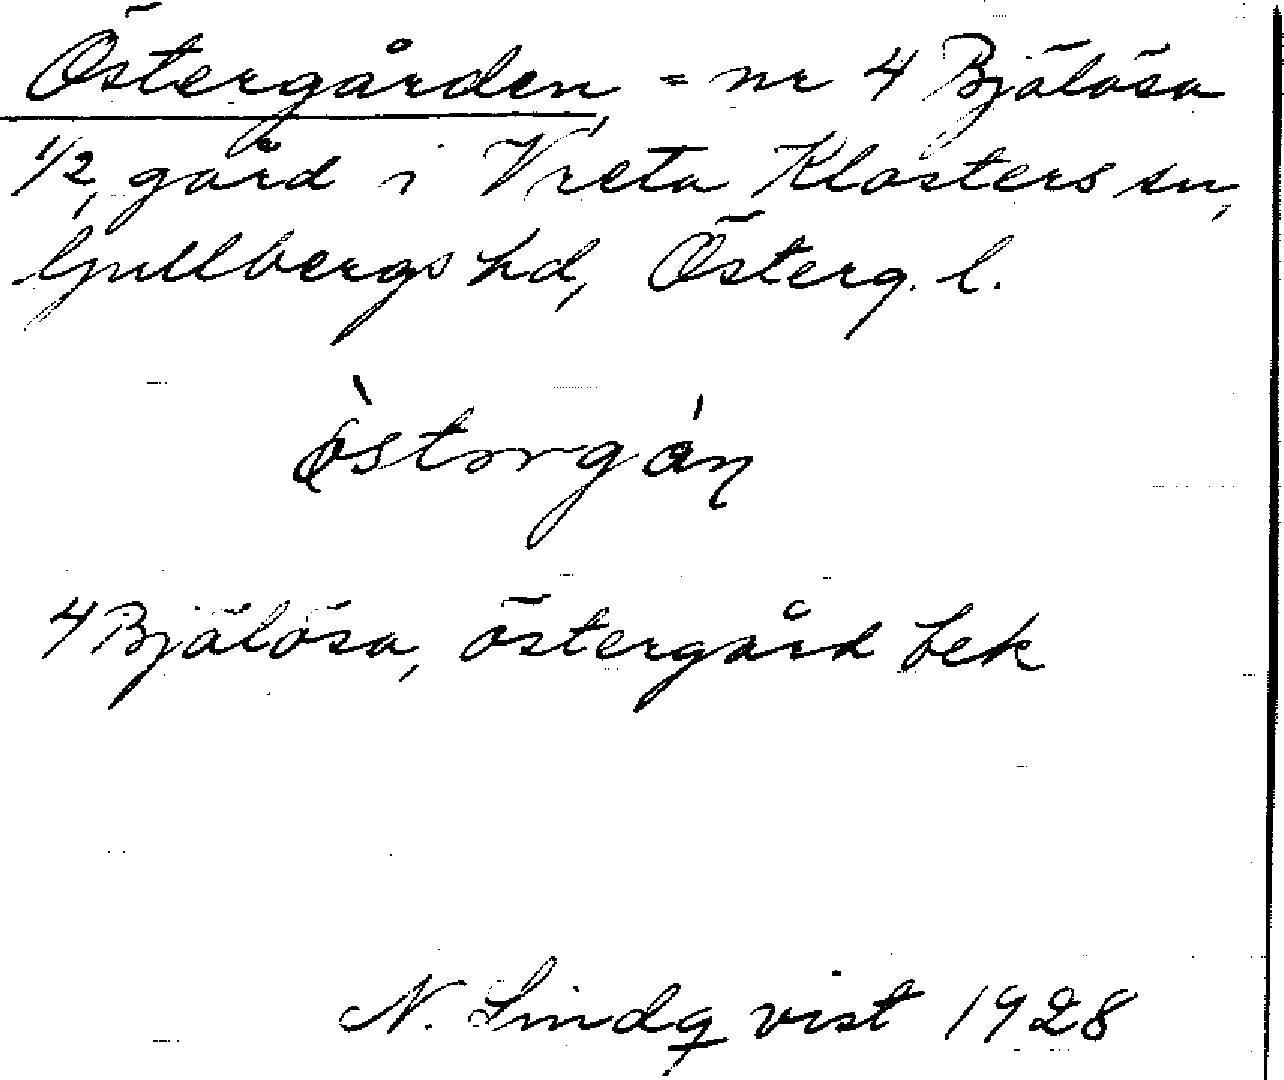 Östergården = nr 4 Bjälösa
1/2 gård i Vreta Klosters sn,
Gullbergs hd, Österg. l.
4 Bjälösa, östergård bek
N. Lindqvist 1928